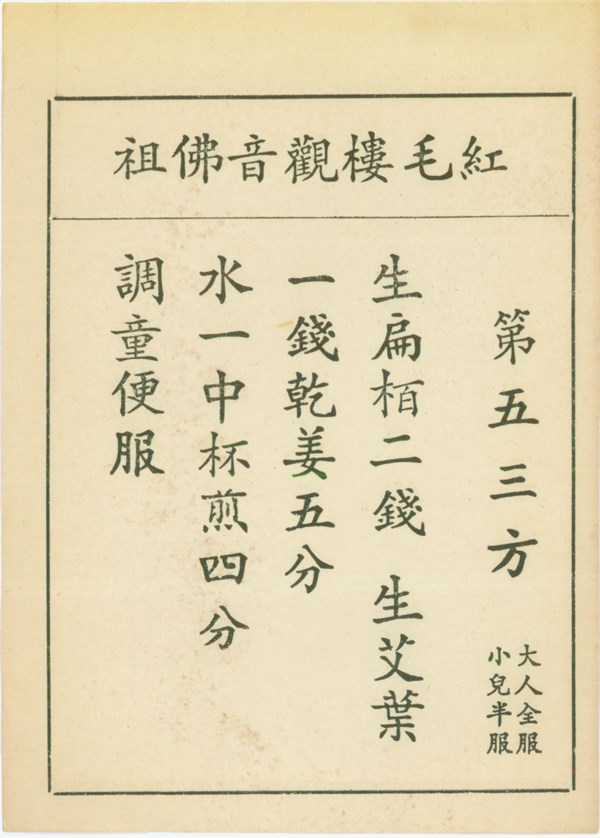 紅毛樓觀音佛祖
第五三方
大人全服
小兒半服
生扁栢二錢 生艾葉
一錢乾姜五分
水一中杯煎四分
調童便服